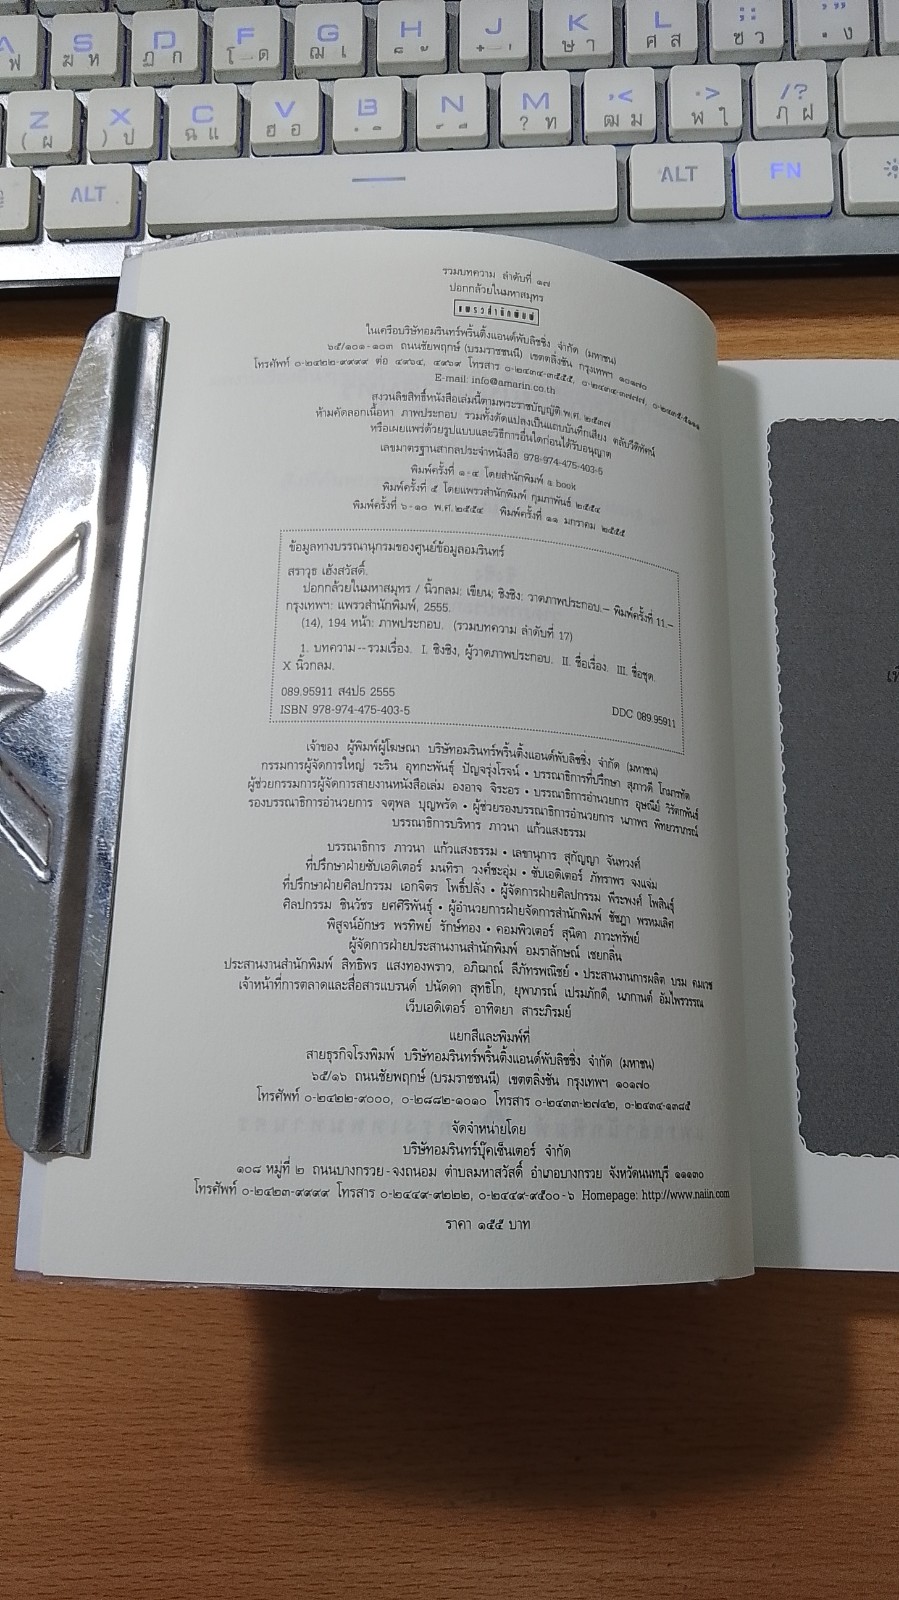 A ฟ
S ฆ ห
D ฏ ก
F โ ด
G ฌ เ
H
J
K ษ า
L ศ ส
: ; ซ ว
" ' . ง
Z ( ผ
X ) ป
C ฉ แ
V ฮ อ
B
N
M ? ท
, < ฒ ม
. > ฬ ใ
/ ? ฦ ฝ
ALT
ALT
FN
รวมบทความ ลำดับที่ ๑๗
ปอกกล้วยในมหาสมุทร
แพรวสำนักพิมพ์
ในเครือบริษัทอมรินทร์พริ้นติ้งแอนด์พับลิชชิ่ง จำกัด (มหาชน)
๖๕/๑๐๑-๑๐๓ ถนนชัยพฤกษ์ (บรมราชชนนี) เขตตลิ่งชัน กรุงเทพฯ ๑๐๑๗๐
โทรศัพท์ ๐-๒๔๒๒-๙๙๙๙ ต่อ ๔๙๖๔, ๔๙๖๙ โทรสาร ๐-๒๔๓๔-๓๕๕๕, ๐-๒๔๓๔-๓๗๗๗, ๐-๒๔๓๕-๕๑๑๑
E-mail: info@amarin.co.th
สงวนลิขสิทธิ์หนังสือเล่มนี้ตามพระราชบัญญัติ พ.ศ. ๒๕๓๗
ห้ามคัดลอกเนื้อหา ภาพประกอบ รวมทั้งดัดแปลงเป็นแถบบันทึกเสียง ตลับวีดิทัศน์
หรือเผยแพร่ด้วยรูปแบบและวิธีการอื่นใดก่อนได้รับอนุญาต
เลขมาตรฐานสากลประจำหนังสือ 978-974-475-403-5
พิมพ์ครั้งที่ ๑-๔ โดยสำนักพิมพ์ a book
พิมพ์ครั้งที่ ๕ โดยแพรวสำนักพิมพ์ กุมภาพันธ์ ๒๕๕๔
พิมพ์ครั้งที่ ๖-๑๐ พ.ศ. ๒๕๕๔ พิมพ์ครั้งที่ ๑๑ มกราคม ๒๕๕๕
ข้อมูลทางบรรณานุกรมของศูนย์ข้อมูลอมรินทร์
สราวุธ เฮ้งสวัสดิ์.
ปอกกล้วยในมหาสมุทร / นิ้วกลม: เขียน; ชิงชิง: วาดภาพประกอบ.-- พิมพ์ครั้งที่ 11.--
กรุงเทพฯ: แพรวสำนักพิมพ์, 2555.
(14), 194 หน้า: ภาพประกอบ. (รวมบทความ ลำดับที่ 17)
1. บทความ--รวมเรื่อง. I. ชิงชิง, ผู้วาดภาพประกอบ. II. ชื่อเรื่อง. III. ชื่อชุด.
X นิ้วกลม.
089.95911 ส4ป5 2555
ISBN 978-974-475-403-5 DDC 089.95911
เจ้าของ ผู้พิมพ์ผู้โฆษณา บริษัทอมรินทร์พริ้นติ้งแอนด์พับลิชชิ่ง จำกัด (มหาชน)
กรรมการผู้จัดการใหญ่ ระริน อุทกะพันธุ์ ปัญจรุ่งโรจน์ • บรรณาธิการที่ปรึกษา สุภาวดี โกมารทัต
ผู้ช่วยกรรมการผู้จัดการสายงานหนังสือเล่ม องอาจ จิระอร • บรรณาธิการอำนวยการ อุษณีย์ วิรัตกพันธ์
รองบรรณาธิการอำนวยการ จตุพล บุญพรัด • ผู้ช่วยรองบรรณาธิการอำนวยการ นภาพร พิทยวราภรณ์
บรรณาธิการบริหาร ภาวนา แก้วแสงธรรม
บรรณาธิการ ภาวนา แก้วแสงธรรม • เลขานุการ สุกัญญา จันทวงศ์
ที่ปรึกษาฝ่ายซับเอดิเตอร์ มนทิรา วงศ์ชะอุ่ม • ซับเอดิเตอร์ ภัทราพร จงแจ่ม
ที่ปรึกษาฝ่ายศิลปกรรม เอกจิตร โพธิ์ปลั่ง • ผู้จัดการฝ่ายศิลปกรรม พีระพงศ์ โพสินธุ์
ศิลปกรรม ชินวัชร ยศศิริพันธุ์ • ผู้อำนวยการฝ่ายจัดการสำนักพิมพ์ ชัชฎา พรหมเลิศ
พิสูจน์อักษร พรทิพย์ รักษ์ทอง • คอมพิวเตอร์ สุนิดา ภาวะทรัพย์
ผู้จัดการฝ่ายประสานงานสำนักพิมพ์ อมราลักษณ์ เชยกลิ่น
ประสานงานสำนักพิมพ์ สิทธิพร แสงทองพราว, อภิฌาณ์ ลีภัทรพณิชย์ • ประสานงานการผลิต บรม คมเวช
เจ้าหน้าที่การตลาดและสื่อสารแบรนด์ ปนัดดา สุทธิโก, ยุพาภรณ์ เปรมภักดี, นภกานต์ อัมไพรวรรณ
เว็บเอดิเตอร์ อาทิตยา สาระภิรมย์
แยกสีและพิมพ์ที่
สายธุรกิจโรงพิมพ์ บริษัทอมรินทร์พริ้นติ้งแอนด์พับลิชชิ่ง จำกัด (มหาชน)
๖๕/๑๖ ถนนชัยพฤกษ์ (บรมราชชนนี) เขตตลิ่งชัน กรุงเทพฯ ๑๐๑๗๐
โทรศัพท์ ๐-๒๔๒๒-๙๐๐๐, ๐-๒๘๘๒-๑๐๑๐ โทรสาร ๐-๒๔๓๓-๒๗๔๒, ๐-๒๔๓๔-๑๓๘๕
จัดจำหน่ายโดย
บริษัทอมรินทร์บุ๊คเซ็นเตอร์ จำกัด
๑๐๘ หมู่ที่ ๒ ถนนบางกรวย-จงถนอม ตำบลมหาสวัสดิ์ อำเภอบางกรวย จังหวัดนนทบุรี ๑๑๑๓๐
โทรศัพท์ ๐-๒๔๒๓-๙๙๙๙ โทรสาร ๐-๒๔๔๙-๙๒๒๒, ๐-๒๔๔๙-๙๕๐๐-๖ Homepage: http://www.naiin.com
ราคา ๑๕๕ บาท